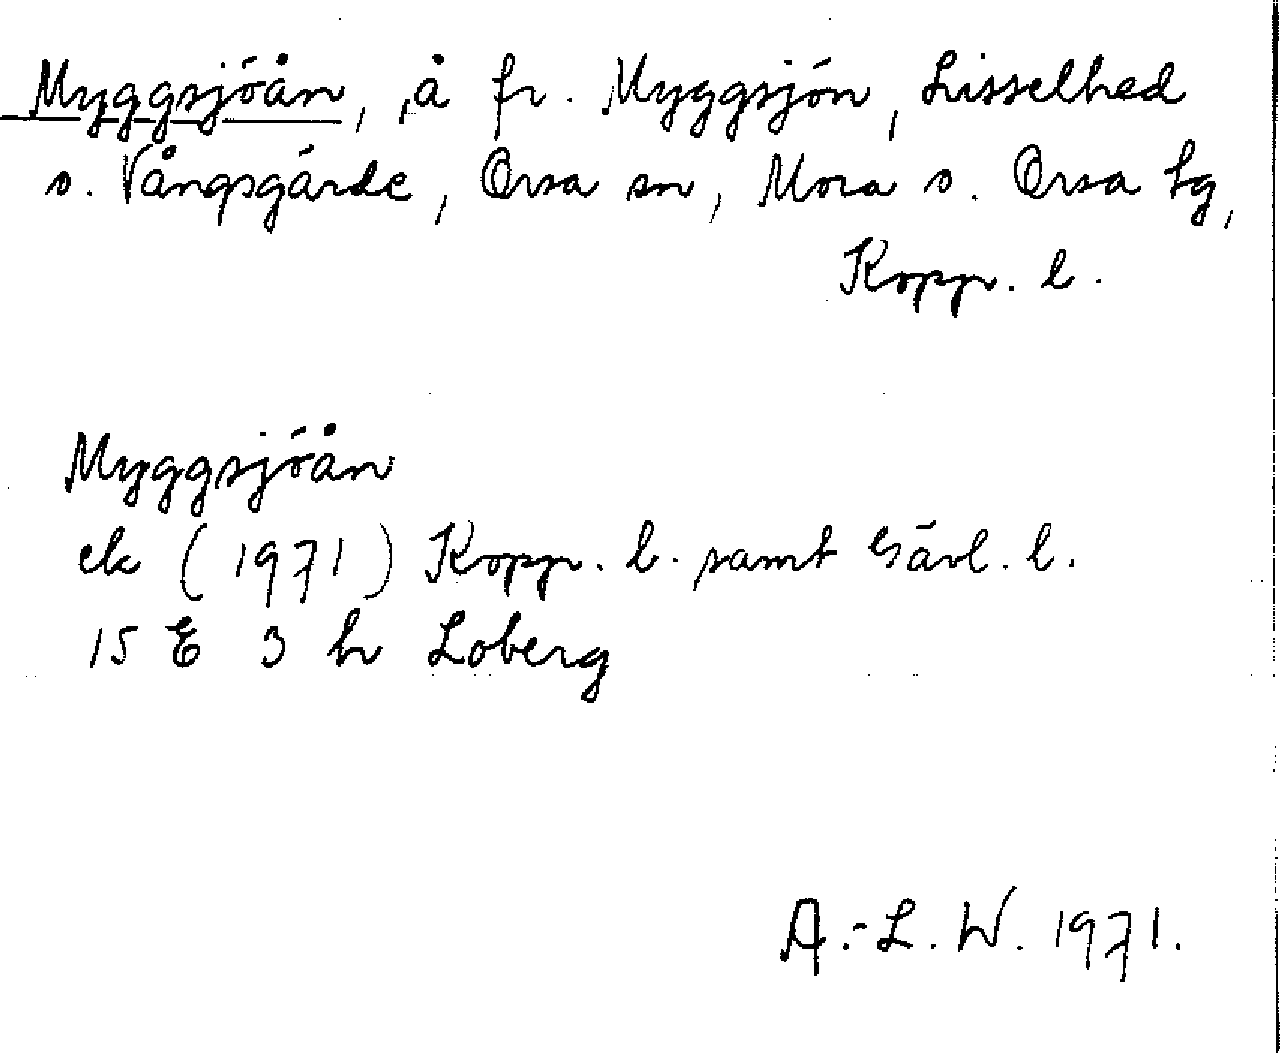 Myggsjöån, å fr. Myggsjön, Lisselhed
o. Vångsgärde, Orsa sn, Mora o. Orsa tg,
Kopp. l.
Myggsjöån
ek (1971) Kopp. l. samt Gävl. l.
15 E 3 h Loberg
A.-L. W. 1971.